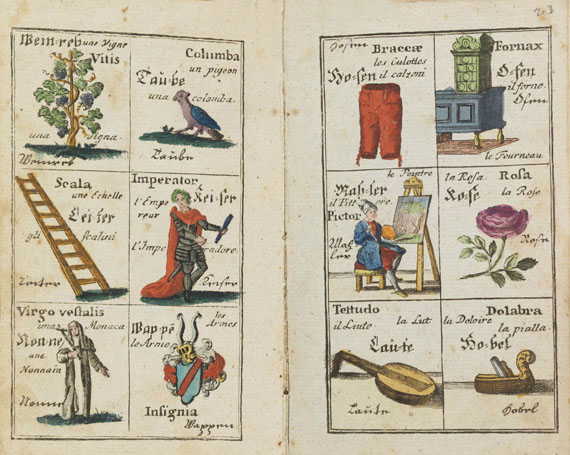 Wein⸗reb une Vigne
Vitis
una Vigna.
Weinreb
Columba
un pigeon
Tau⸗be
una colomba.
Taube
Scala
une Echelle
Lei⸗ter
gli Scalini
Leiter
Imperator
Kei⸗ser
l'Empe
reur
l'Impe radore.
Keiser
Virgo vestalis
una Monaca
Non⸗ne
une
Nonnain
Nonne
les
Armes
Wap⸗pē
le Armе
Insignia
Wappen
23
Hosen
Braccæ
les Culottes
Ho⸗sen il calzoni
Fornax
O⸗fen
il forno.
Ofen
le Fourneau
le Peintre
Mah⸗ler
il Pitt ore.
Pictor
Mah
ler
la Rosa.
Rosa
Ro⸗se
la Rose
Rose
Testudo
il Liuto.
la Lut
Lau⸗te
Laute
Dolabra
la Doloire
la pialla.
Ho⸗bel
Hobel